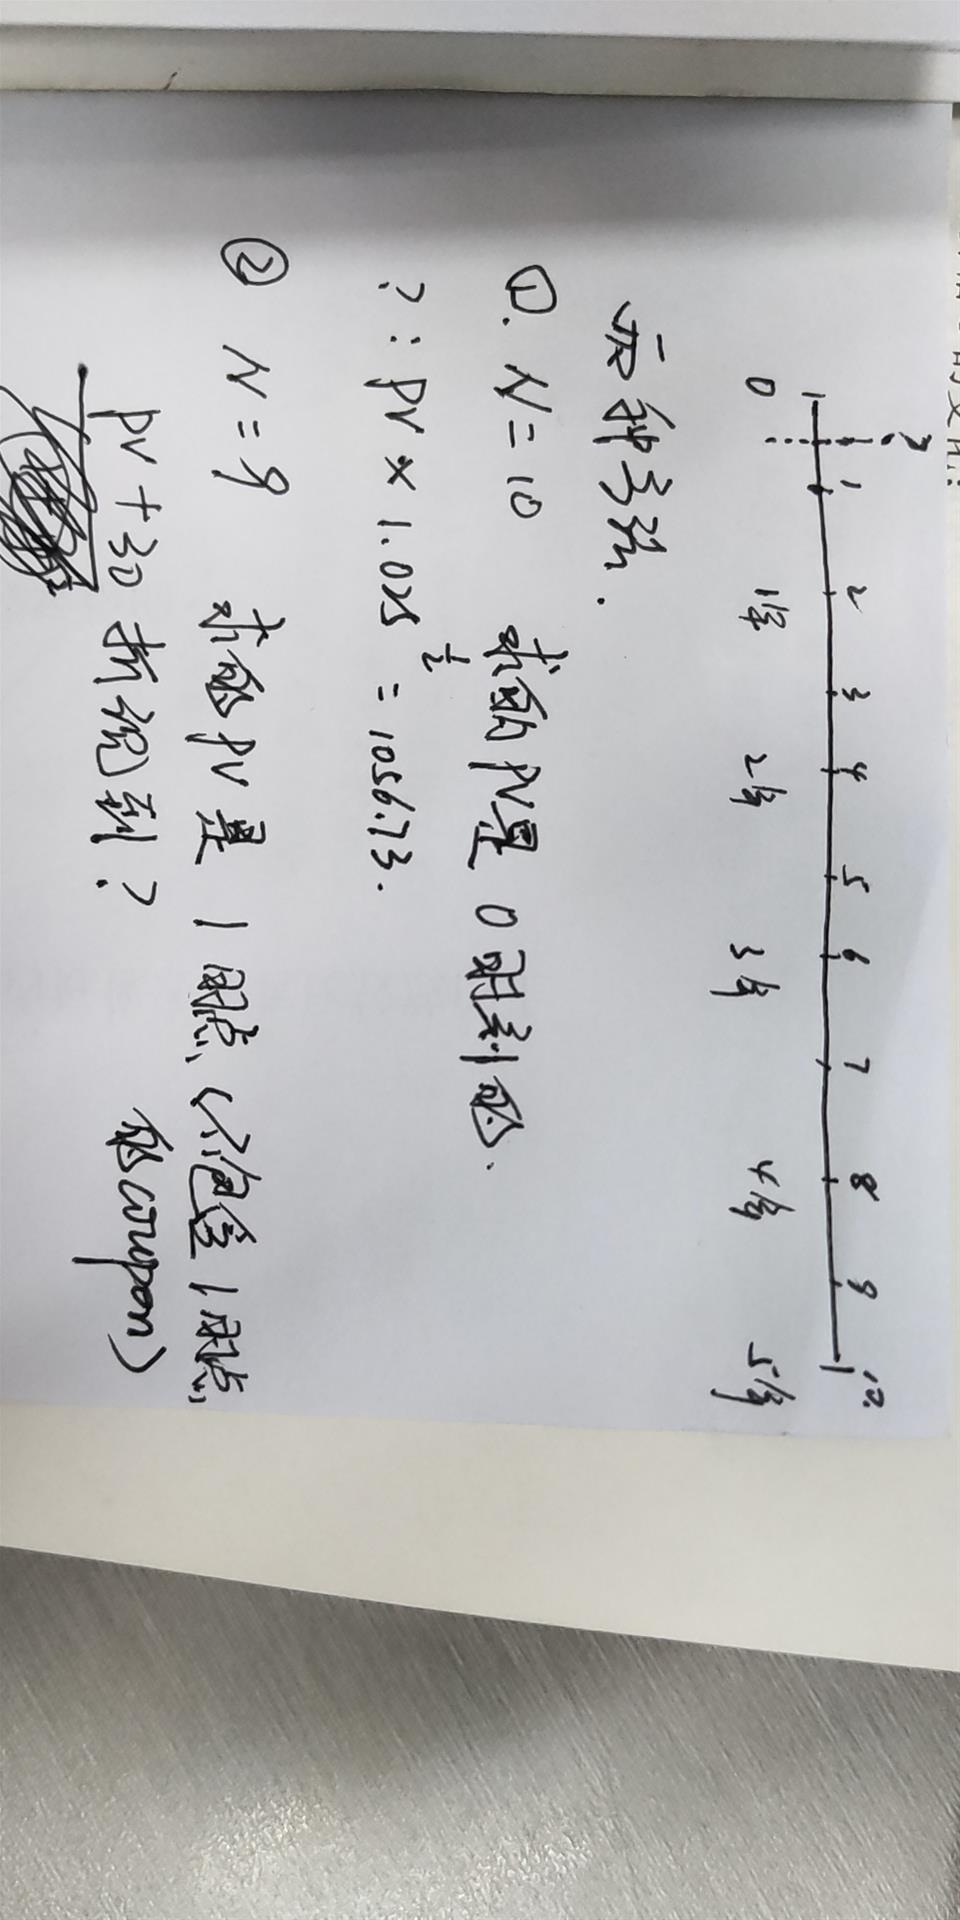 ?
0 1 2 3 4 5 6 7 8 9 10.
1年 2年 3年 4年 5年
两种方法.
①. N=10 求的PV是0时刻的.
?: PV × 1.025^½ = 1056.73.
② N=9 求的PV是1时点(不包含1时点
的coupon)
PV+30 折现到?